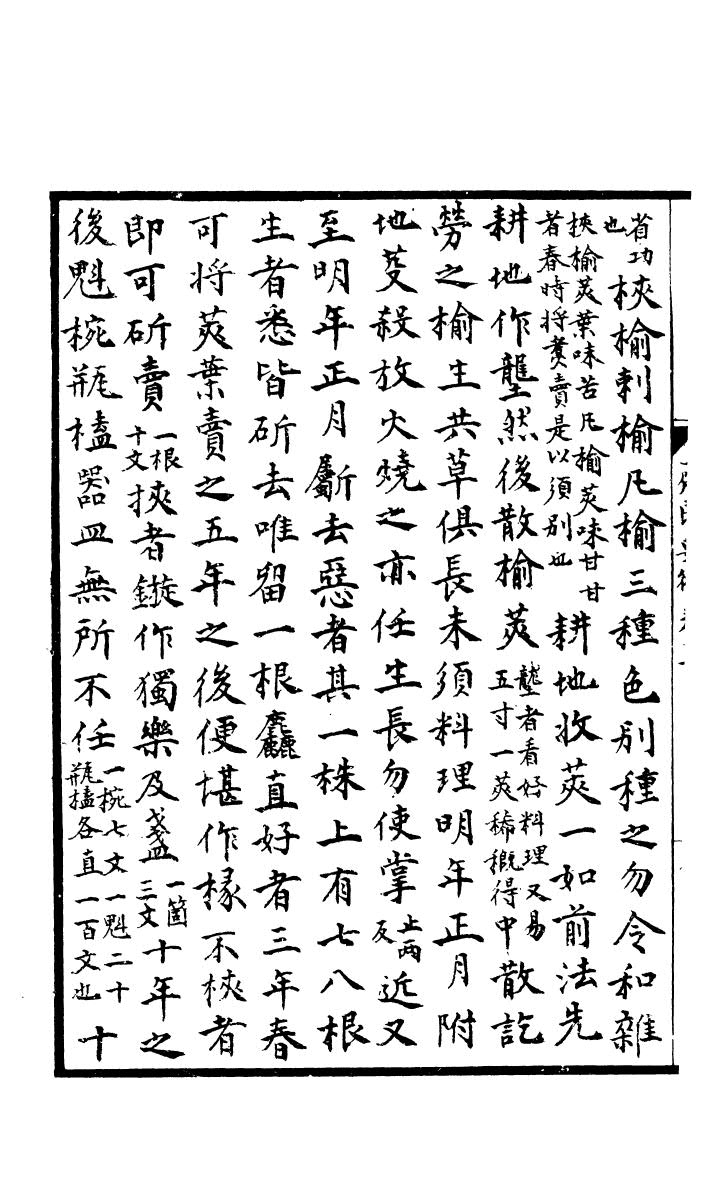 省功也梜榆刺榆凡榆三種色别種之勿令和雜
挾榆莢葉味苦凡榆莢味甘甘者春時將煑賣是以須别也耕地收莢一如前法先
耕地作壟然後散榆莢壟者看好料理又易五寸一莢稀穊得中散訖
勞之榆生共草俱長未須料理明年正月附
地芟殺放火燒之亦任生長勿使掌止兩反近又
至明年正月斸去惡者其一株上有七八根
生者悉皆斫去唯留一根麤直好者三年春
可將莢葉賣之五年之後便堪作椽不梜者
即可斫賣一根十文挾者鏇作獨樂及盞一箇三文十年之
後魁椀瓶榼器皿無所不任一椀七文一魁二十瓶榼各直一百文也十